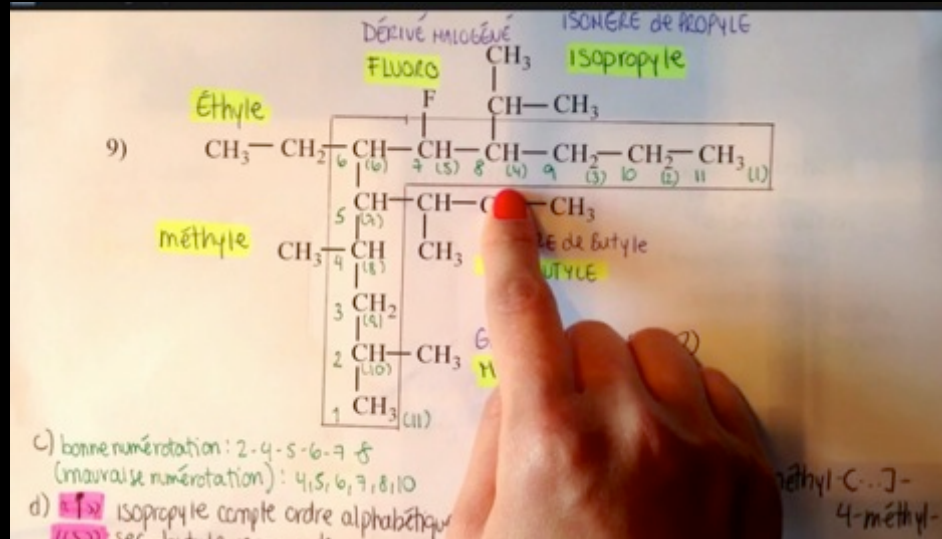 DÉRIVÉ HALOGÉNÉ
ISOMÈRE de PROPYLE
FLUORO
CH3
Isopropyle
Éthyle
F
CH—CH3
9)
CH3—CH2—CH—CH—CH—CH2—CH2—CH3
6 (6) 7 (5) 8 (4) 9 (3) 10 (2) 11 (1)
CH—CH—C —CH3
5 (7)
de butyle
méthyle
CH3—CH
CH3
UTYLE
4 (8)
3 CH2
(9)
2 CH—CH3
(10)
1 CH3 (11)
c) bonne numérotation : 2-4-5-6-7-8
(mauvaise numérotation) : 4,5,6,7,8,10
méthyl-[...]-
d) «i» isopropyle compte ordre alphabétiqu
4-méthyl-